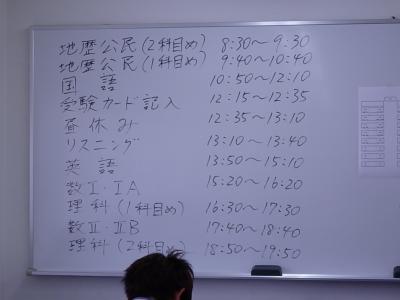 地歴公民(2科目め) 8:30〜9:30
地歴公民(1科目め) 9:40〜10:40
国語 10:50〜12:10
受験カード記入 12:15〜12:35
昼休み 12:35〜13:10
リスニング 13:10〜13:40
英語 13:50〜15:10
数Ⅰ・ⅠA 15:20〜16:20
理科(1科目め) 16:30〜17:30
数Ⅱ・ⅡB 17:40〜18:40
理科(2科目め) 18:50〜19:50